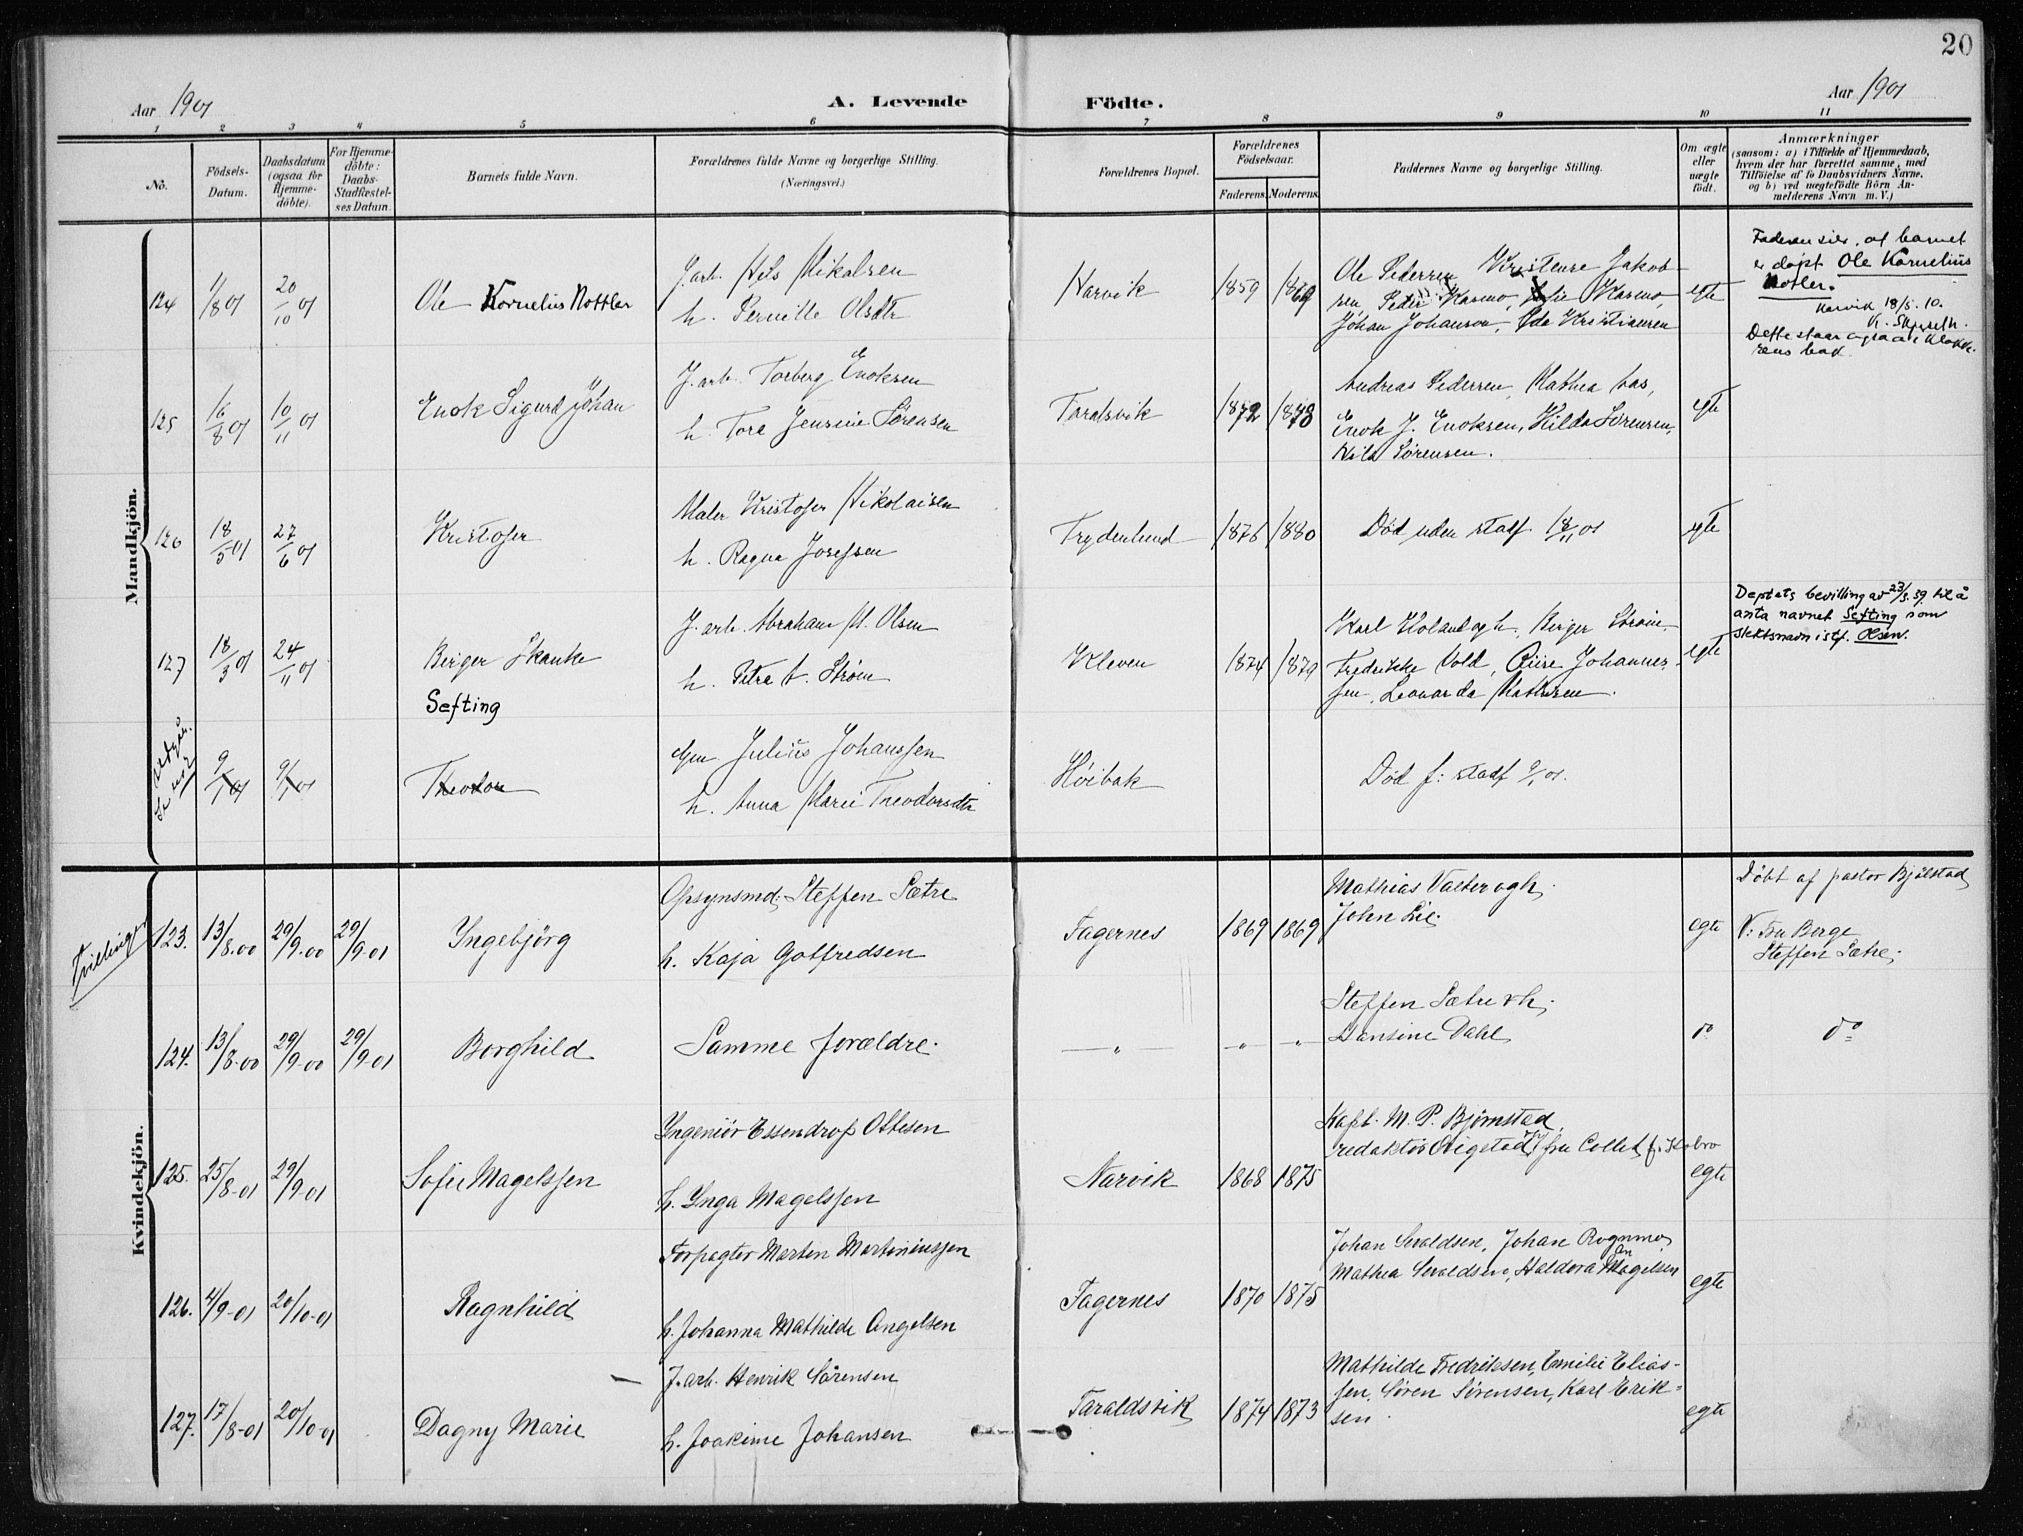 20
Aar 1901
A. Levende Födte.
Aar 1901
1 2 3 4 5 6 7 8 9 10 11
No.
Födsels-Datum.
Daabsdatum (ogsaa for Hjemme-döbte).
For Hjemme-döbte: Daabs-Stadfæstel-ses Datum.
Barnets fulde Navn.
Forældrenes fulde Navne og borgerlige Stilling.
(Næringsvei.)
Forældrenes Bopæl.
Forældrenes Födselsaar.
Faderens. Moderens.
Faddernes Navne og borgerlige Stilling.
Om ægte eller uægte födt.
Anmærkninger
(saasom: a) i Tilfælde af Hjemmedaab, hvem der har forrettet samme, med Tilföielse af to Daabsvidners Navne, og b) ved uægtefödte Börn An-melderens Navn m. V.)
Mandkjön.
124
1/8 01
20/10 01
Ole Kornelius Nottler
J. arb. Nils Nikalsen
h. Pernille Olsdtr
Narvik
1859
1869
Ole Pedersen Kristense Jakob-
sen Peder Karmo, Karmo,
Johan Johanson, Ida Kristiansen
egte
Faderen sier, at barnet
er døpt Ole Kornelius
Notler.
Narvik 18/5. 10.
Dette staar ogsaa i Klokke-
rens bok.
125
16/8 01
10/11 01
Enok Sigurd Johan
J. arb. Torberg Enoksen
h. Tora Jensine Sørensen
Taralsvik
1872
1878
Andreas Pedersen, Mathea
Enok J. Enoksen, Hilda Sørensen,
Nils Sørensen.
egte
126
18/5 01
27/6 01
Kristofer
Maler Kristofer Nikolaisen
h. Ragna Josefsen
Frydenlund
1876
1880
Død uden stadf. 18/11 01
egte
127
18/3 01
24/11 01
Berger Skanke
Sefting
J. arb. Abraham M. Olsen
h. Petra A. Strøm
Kleven
1874
1879
Karl Holand ogh, Berger Strøm,
Fredrikke Vold, Johannes-
sen, Leonarda Mathisen.
egte
Deptets bevilling av 23/5. 59 til å
anta navnet Sefting som
slektsnavn istf. Olsen.
Udgår.
9/1 01
9/1 01
Theodor
Julius Johanssen
h. Anna Marie Theodorsdtr
Høibak
Død f: stadf 9/1 01
Kvindekjön.
Tvillinger
123.
13/8.00
29/9.00
29/9.01
Yngebjörg
Opsynsmd. Steffen Sætre
h. Kaja Gotfredsen
Fagernes
1869
1869
Mathias Valter ogh.
John Lie.
egte
Döbt af pastor Bjølstad
V: Fru Berge
Steffen Sætre.
124.
13/8.00
29/9.00
29/9.01
Borghild
Samme forældre.
— „ —
-„-
-„-
Steffen Sætre & h.
Hansine Dahl
do
do
125.
25/8-01
29/9-01
Sofie Magelssen
Yngeniör Essendrop Ottesen
h. Ynga Magelssen
Narvik
1868
1875
Kapt. M. P. Bjørnstad,
redaktör Qvigstad fru Collet f. Kobro
egte
126.
4/9-01
20/10-01
Ragnhild
Forpagter Morten Martiniussen
h. Johanna Mathilde Angelsen
Fagernes
1870
1875
Johan Sivaldsen, Johan Rognmo,
Mathea Sivaldsen, Haldora Angelsen
egte
127.
17/8-01
20/10-01
Dagny Marie
J. arb. Henrik Sörensen
h. Joakime Johansen
Taraldsvik
1874
1873
Mathilde Fredriksen, Emilie Elias-
sen, Sören Sörensen, Karl Erik-
sen.
egte